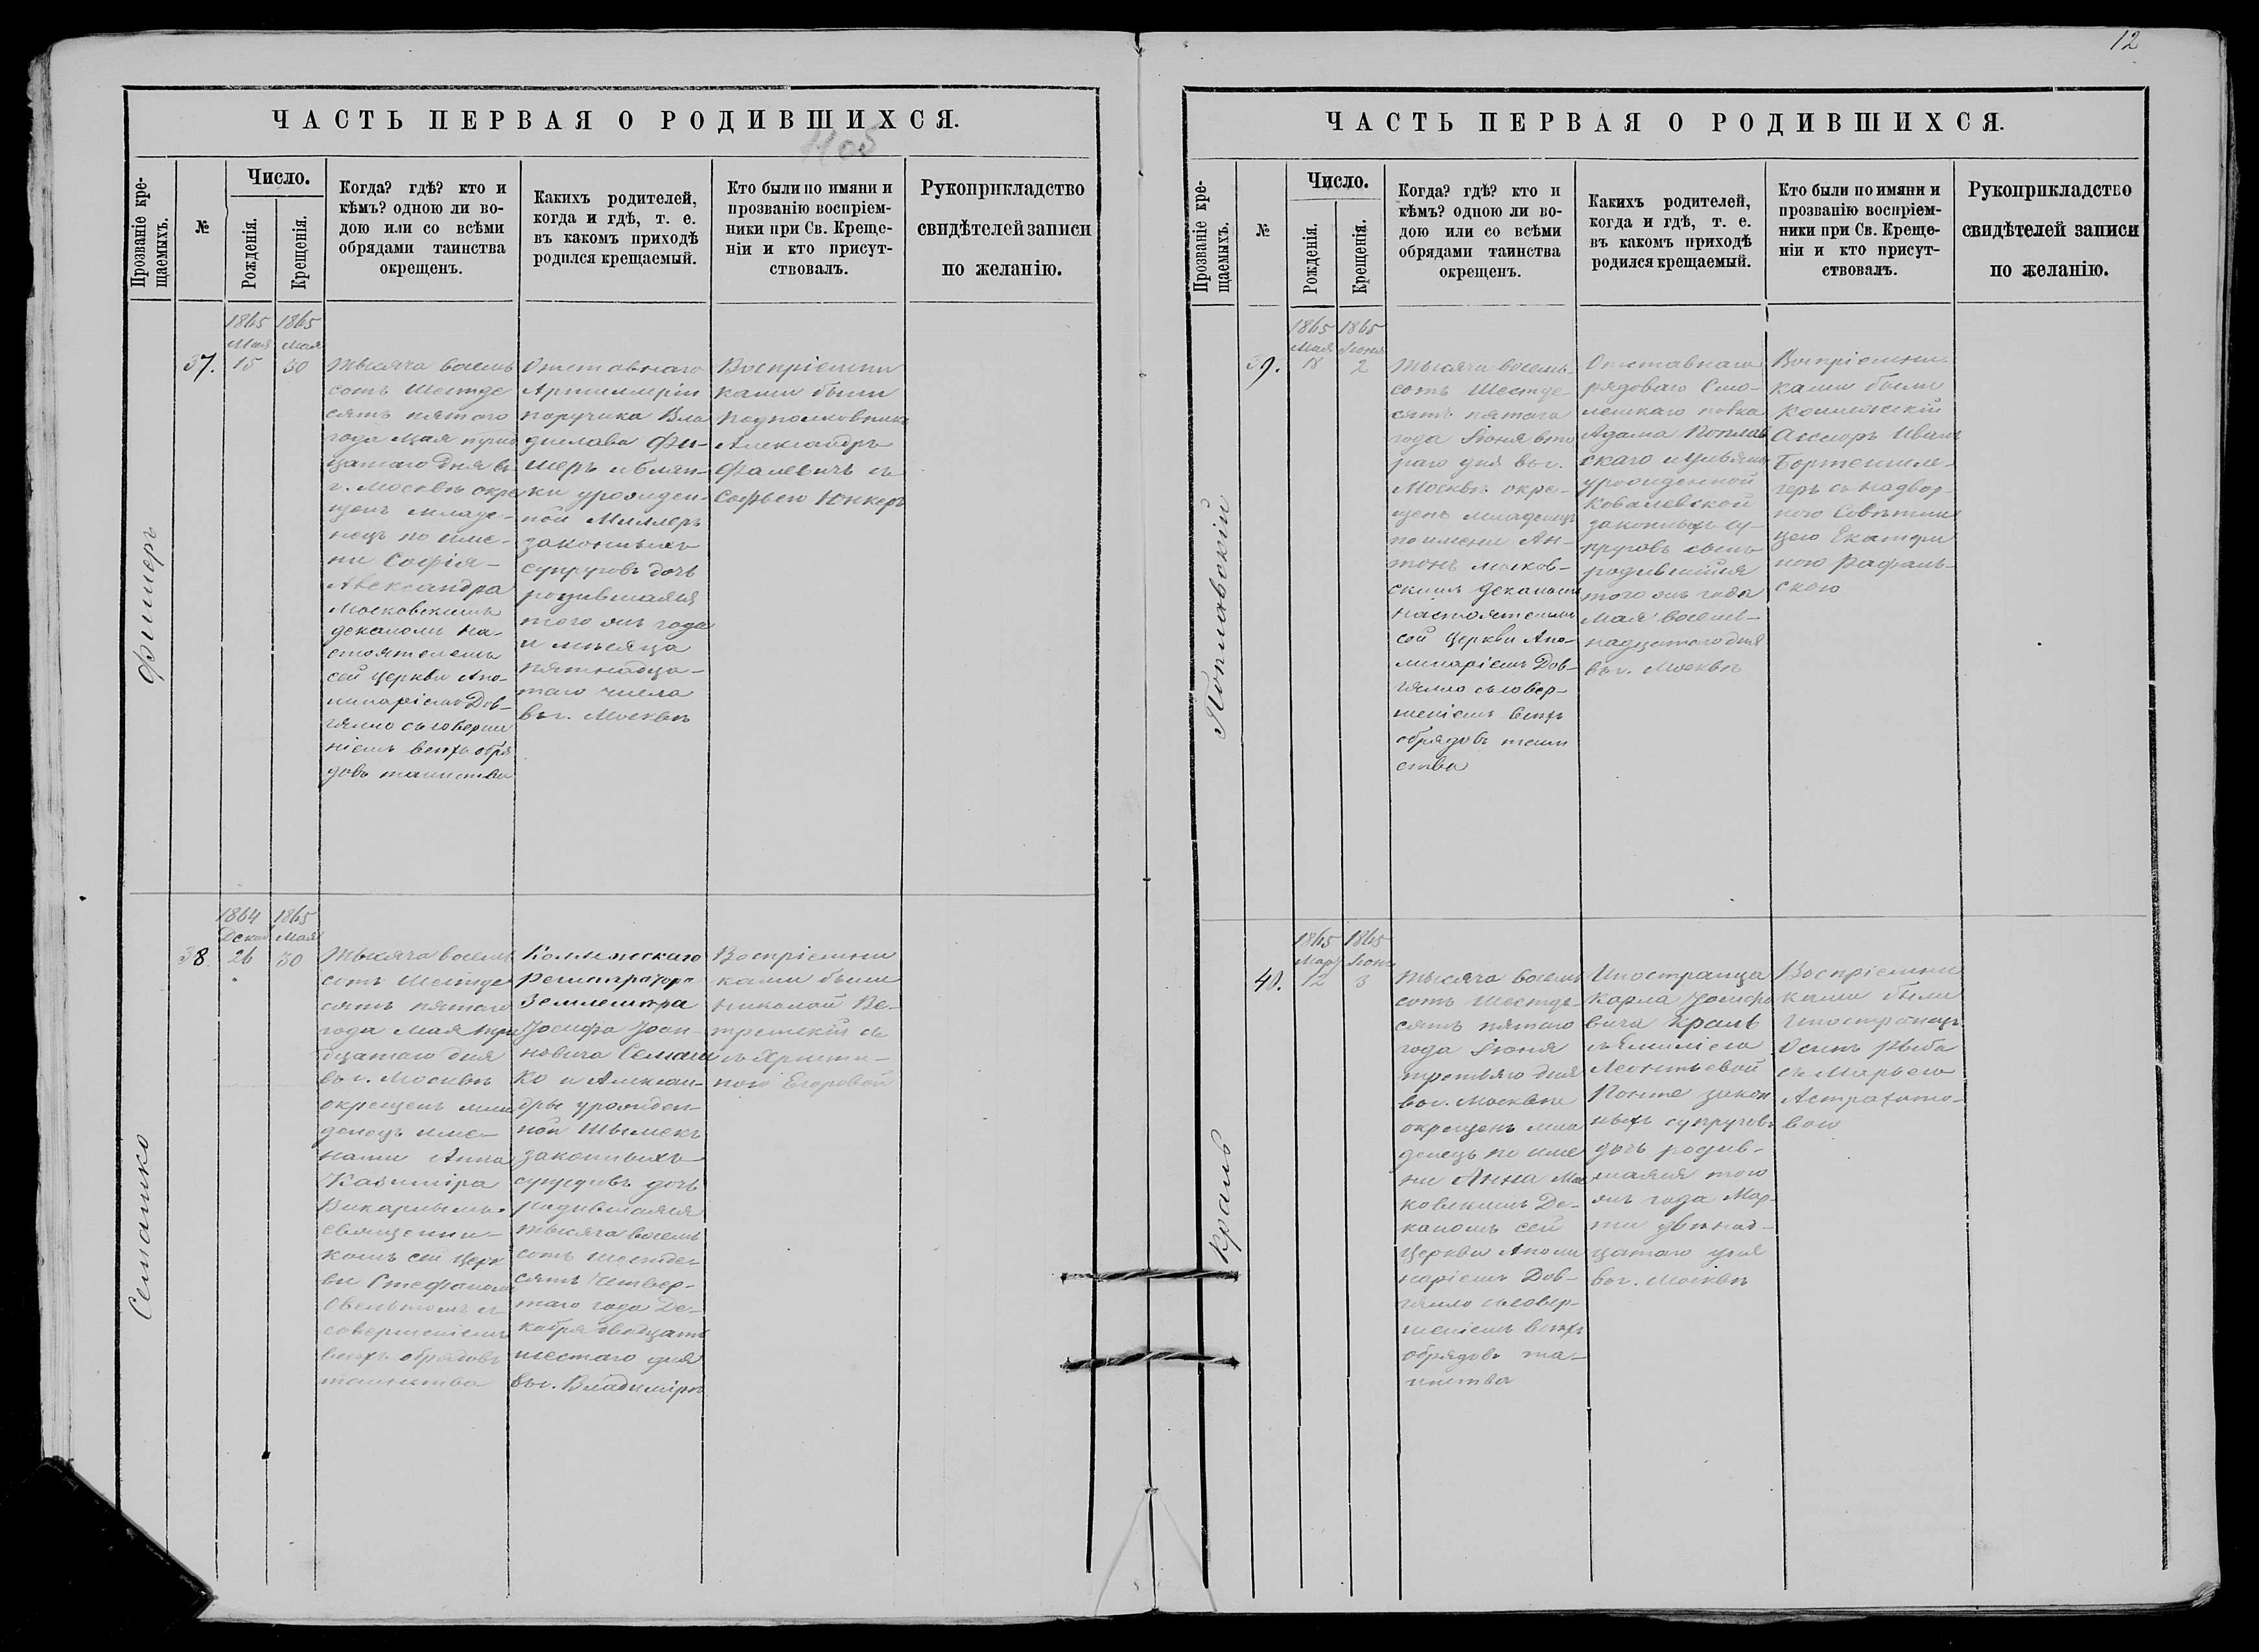 12
ЧАСТЬ ПЕРВАЯ О РОДИВШИХСЯ.
Прозваніе кре-
щаемыхъ.
№
Число.
Рожденія.
Крещенія.
Когда? гдѣ? кто и
кѣмъ? одною ли во-
дою или со всѣми
обрядами таинства
окрещенъ.
Какихъ родителей,
когда и гдѣ, т. е.
въ какомъ приходѣ
родился крещаемый.
Кто были по имяни и
прозванію воспріем-
ники при Св. Креще-
ніи и кто присут-
ствовалъ.
Рукоприкладство
свидѣтелей записи
по желанію.
Фишеръ
37.
1865
Мая
15
1865
Мая
30
Тысяча восемь
сотъ шестьде
сятъ пятого
года Мая трид
цатаго дня въ
г. Москвѣ окре
щенъ младе-
нецъ по име-
ни Софія-
Александра
Московскимъ
деканомъ На-
стоятелемъ
сей церкви Апо-
линаріемъ Дов-
гялло съ соверше
ніемъ всѣхъ обря
довъ таинства
Отставнаго
Артиллеріи
поручика Вла
дислава Фи-
шеръ и Блян-
ки урожден-
ной Миллеръ
законныхъ
супруговъ дочь
родившаяся
того же года
и мѣсяца
пятнадца-
таго числа
въ г. Москвѣ
Воспріемни
ками были
Подполковникъ
Александръ
Фалевичъ съ
Софьею Юнкеръ
Семашко
38
1864
Декаб
26
1865
Мая
30
Тысяча восемь
сотъ шестьде
сятъ пятого
года Мая три
дцатаго дня
въ г. Москвѣ
окрещенъ мла
денецъ име-
нами Анна
Казиміра
Викарнымъ
священни-
комъ сей церк
ви Стефаномъ
съ
совершеніемъ
всѣхъ обрядовъ
таинства
Коллежскаго
Регистратора
Землемѣра
Іосифа Іоан-
новича Семаш
ко и Алексан-
дры урожден-
ной Шымекъ
законныхъ
супруговъ дочь
родившаяся
тысяча восемь
сотъ шестьде-
сятъ четвер-
таго года Де-
кабря двадцать
шестаго дня
въ г. Владимірѣ
Воспріемни
ками были
Николай Ве-
тремскій съ
съ Христи-
ною Егоровой
ЧАСТЬ ПЕРВАЯ О РОДИВШИХСЯ.
Прозваніе кре-
щаемыхъ.
№
Число.
Рожденія.
Крещенія.
Когда? гдѣ? кто и
кѣмъ? одною ли во-
дою или со всѣми
обрядами таинства
окрещенъ.
Какихъ родителей,
когда и гдѣ, т. е.
въ какомъ приходѣ
родился крещаемый.
Кто были по имяни и
прозванію воспріем-
ники при Св. Креще-
ніи и кто присут-
ствовалъ.
Рукоприкладство
свидѣтелей записи
по желанію.
Поплавскій
39.
1865
Мая
18
1865
Іюня
2
Тысяча восемь-
сотъ шестьде-
сятъ пятаго
года Іюня вто
раго дня въ г.
Москвѣ окре-
щенъ младенецъ
по имени Ан-
тонъ Москов-
скимъ Деканомъ
Настоятелемъ
сей церкви Апо-
линаріемъ Дов-
гялло съ совер-
шеніемъ всѣхъ
обрядовъ таин
ства
Отставнаго
рядоваго Смо-
ленскаго полка
Адама Поплав
скаго и Ульяны
урожденной
Ковалевской
законныхъ су-
пруговъ сынъ
родившійся
того же года
Мая восем-
надцатаго дня
въ г. Москвѣ
Воспріемни-
ками были
Коллежскій
Ассесоръ Иванъ
Бортеншле-
геръ съ Надвор-
ною Совѣтни
цею Екатери
ною Рафаль-
скою
Краль
40.
1865
Мар
12
1865
Іюня
3
Тысяча восемь
сотъ шестьде-
сятъ пятаго
года Іюня
третьяго дня
въ г. Москвѣ
окрещенъ мла
денецъ по име
ни Анна Мос
ковскимъ Де-
каномъ сей
Церкви Аполи
наріемъ Дов-
гялло съ совер-
шеніемъ всѣхъ
обрядовъ та-
инства
Иностранца
Карла Іосифо
вича Краль
съ Емиліею
Леонтьевой
законн
ныхъ супруговъ
дочь родив-
шаяся того
же года Мар-
та двѣнад-
цатаго дня
въ г. Москвѣ
Воспріемни
ками были
Иностранецъ
Осипъ Рыба
съ Марьею
Астрахано-
вою